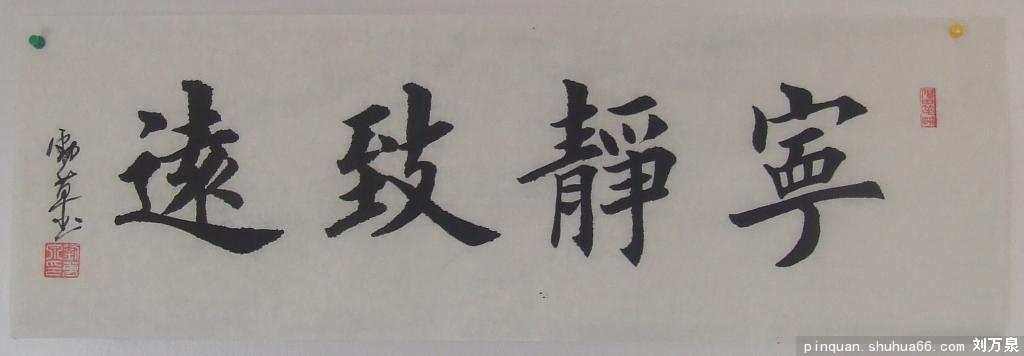 寧靜致遠
pinquan.shuhua66.com 刘万泉